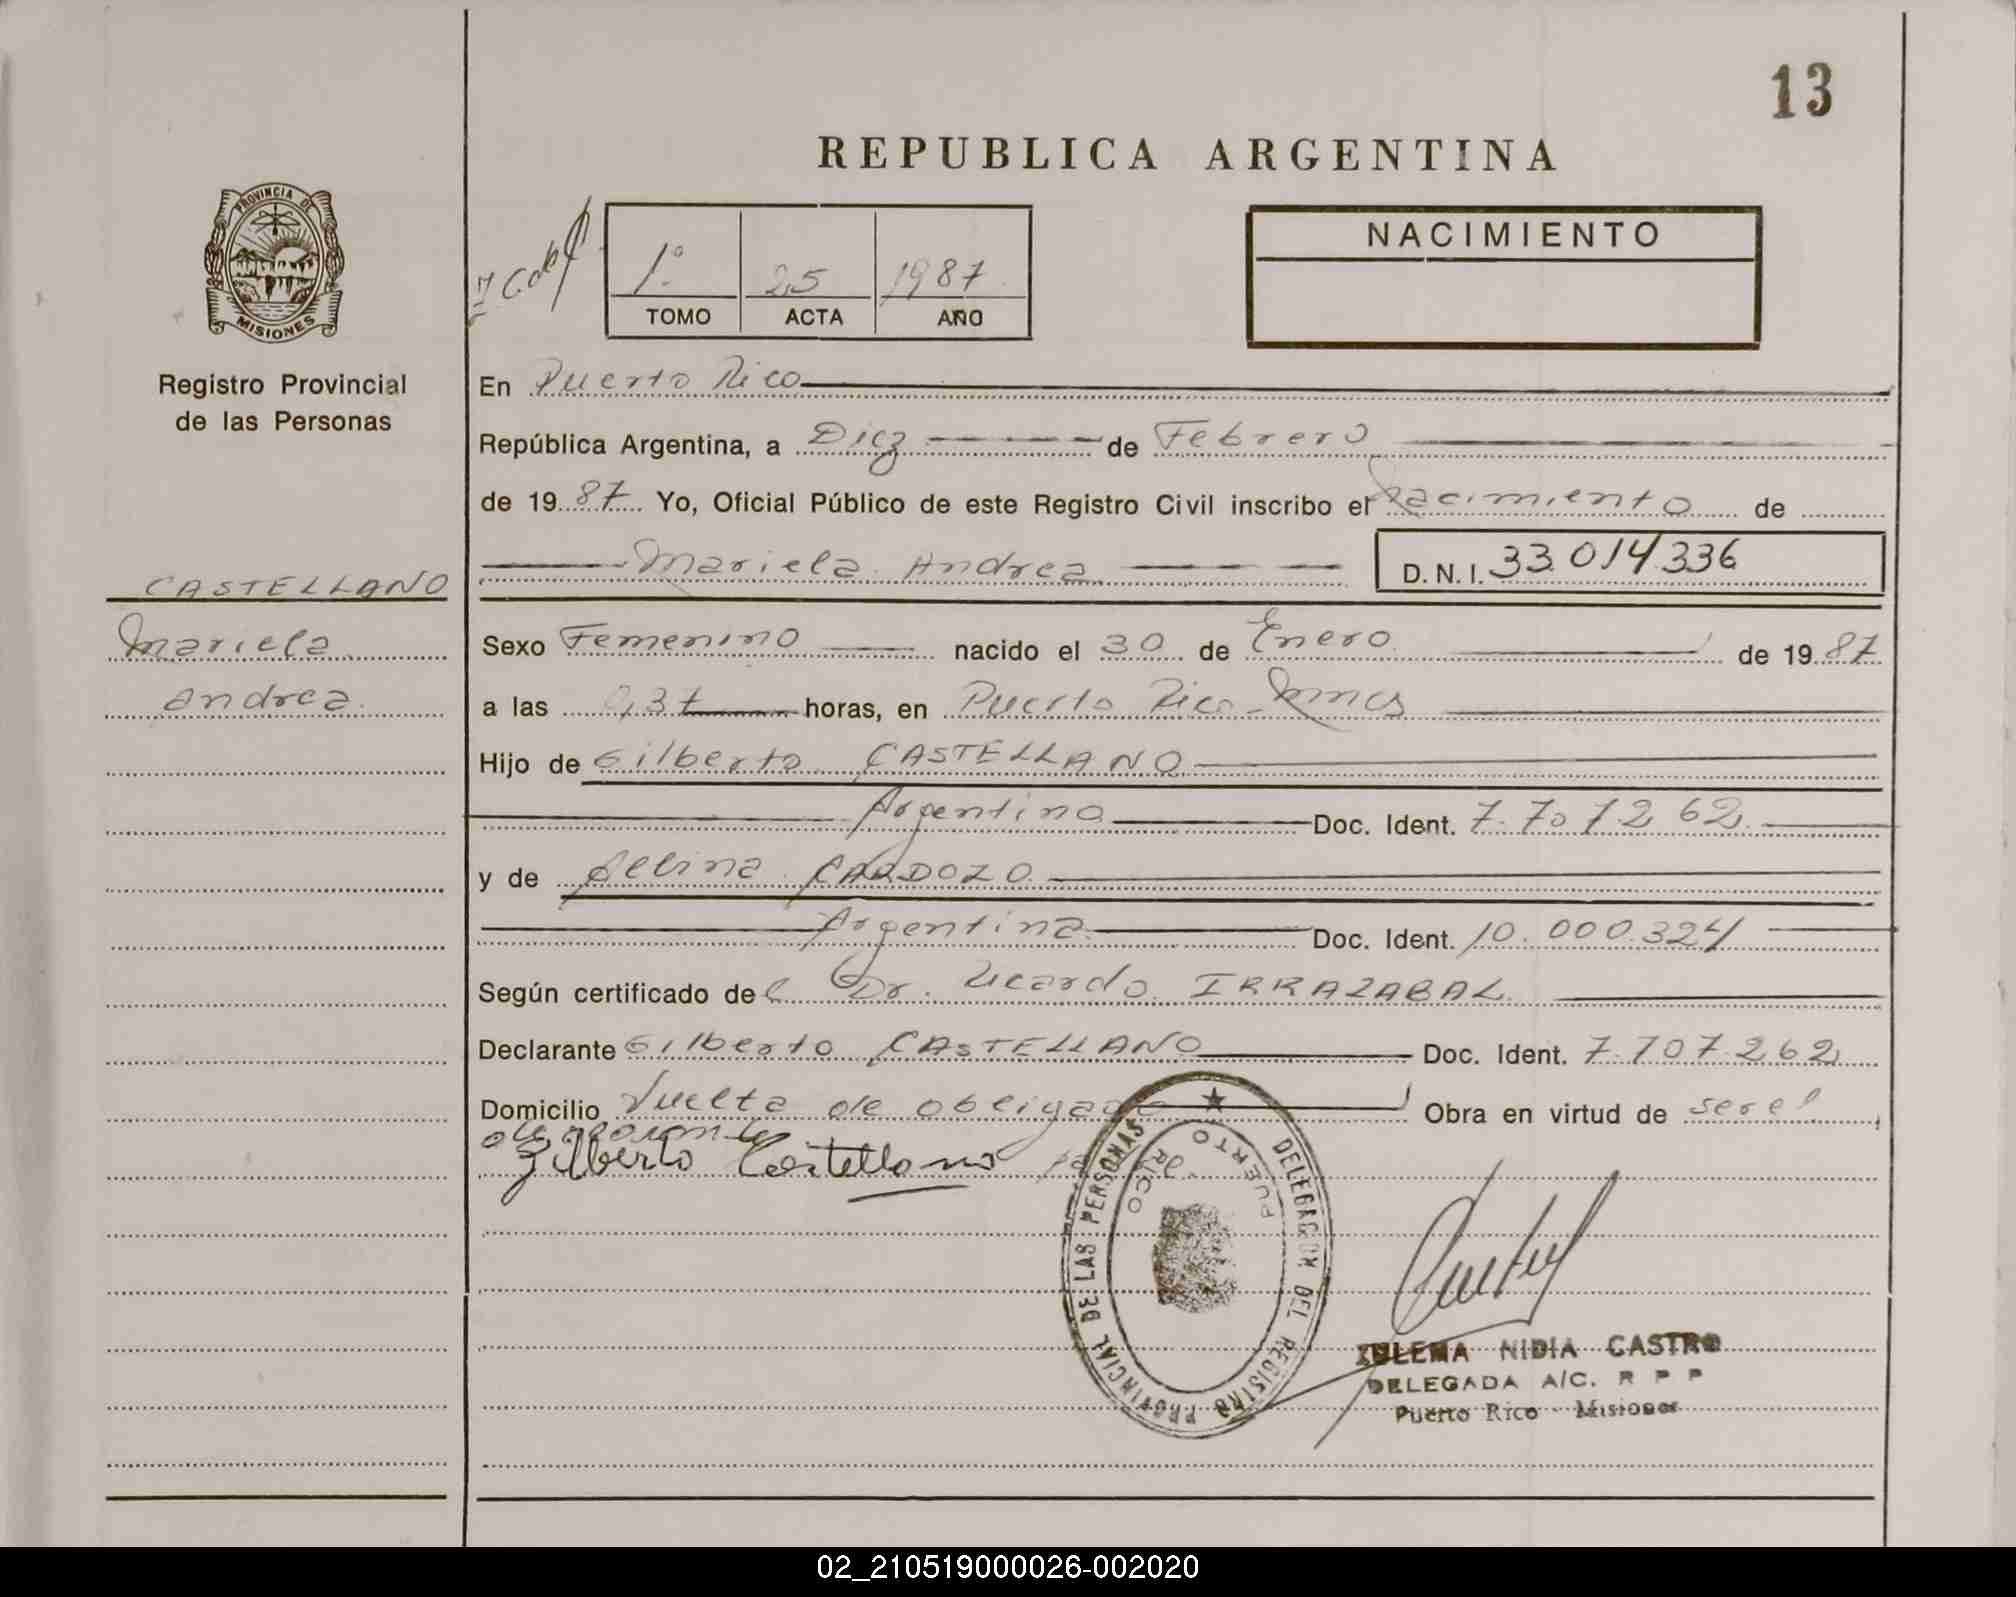 13
REPUBLICA ARGENTINA
PROVINCIA DE
MISIONES
Registro Provincial
de las Personas
1º 25 1987
TOMO ACTA AÑO
NACIMIENTO
En Puerto Rico
República Argentina, a Diez de Febrero
de 1987 Yo, Oficial Público de este Registro Civil inscribo el Nacimiento de
Mariela Andrea D.N.I. 33 014 336
CASTELLANO
Mariela
Andrea
Sexo Femenino nacido el 30 de Enero de 1987
a las 0,37 horas, en Puerto Rico - Mnes
Hijo de Gilberto CASTELLANO
Argentino Doc. Ident. 7.707262
y de Albina CARDOZO
Argentina Doc. Ident. 10.000.324
Según certificado del Dr. Ricardo IRRAZABAL
Declarante Gilberto CASTELLANO Doc. Ident. 7.707.262
Domicilio Vuelta de obligado Obra en virtud de ser el
Gilberto Castellano
DELEGACION DEL REGISTRO PROVINCIAL DE LAS PERSONAS
PUERTO RICO
ZULEMA NIDIA CASTRO
DELEGADA A/C. R P P
Puerto Rico - Misiones
02_210519000026-002020